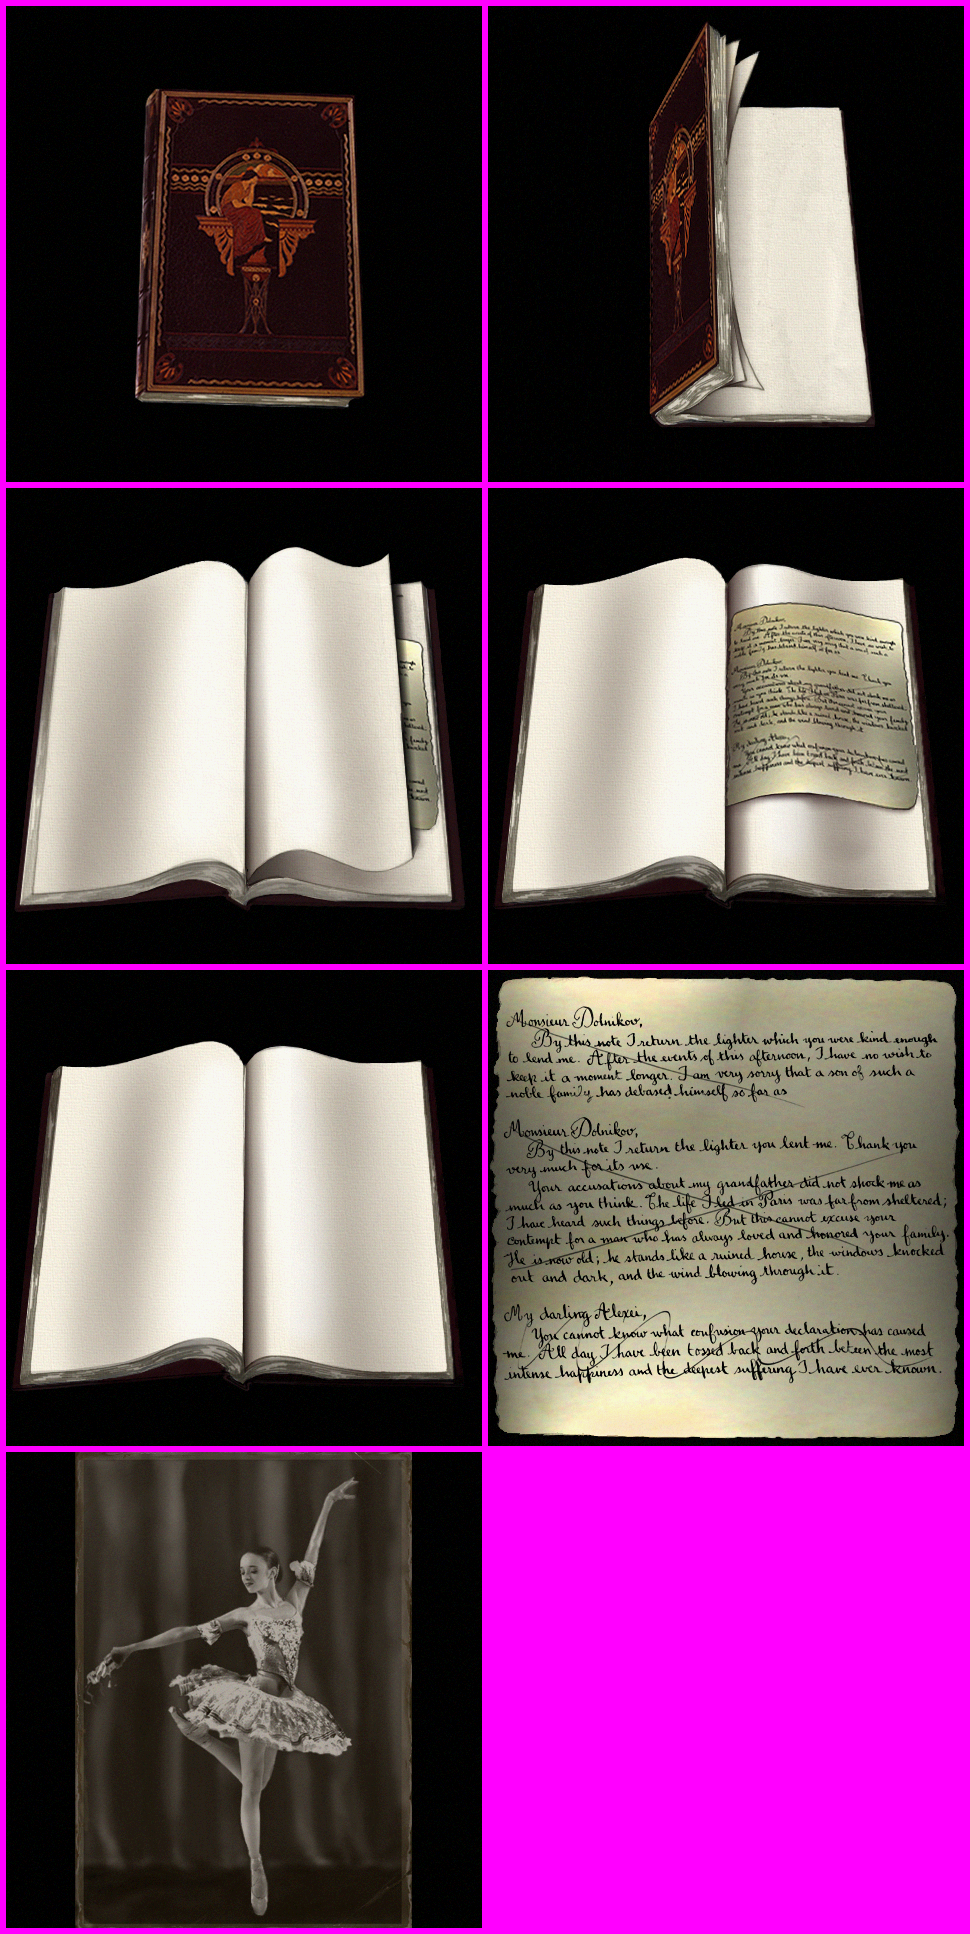 Monsieur Dolnikov,
By this note I return the lighter which you were kind enough
to lend me. After the events of this afternoon, I have no wish to
keep it a moment longer. I am very sorry that a son of such a
noble family has debased himself so far as
Monsieur Dolnikov,
By this note I return the lighter you lent me. Thank you
very much for its use.
Your accusations about my grandfather did not shock me as
much as you think. The life I led in Paris was far from sheltered;
I have heard such things before. But this cannot excuse your
contempt for a man who has always loved and honored your family.
He is now old; he stands like a ruined house, the windows knocked
out and dark, and the wind blowing through it.
My darling Alexei,
You cannot know what confusion your declaration has caused
me. All day I have been tossed back and forth beteen the most
intense happiness and the deepest suffering I have ever known.